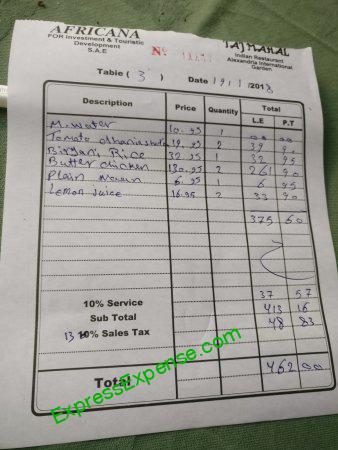 AFRICANA
FOR Investment & Touristic
Development
S.A.E
TAJ MAHAL
Indian Restaurant
Alexandria International
Garden
Nº
Table ( 3 ) Date 19/1/2018
Description Price Quantity Total
L.E P.T
M. Water 10.95 1
Tomato 19.95 2 39 90
Biryani Rice 32.95 1 32 95
Butter chicken 130.95 2 261 90
Plain Naan 6.95 1 6 95
Lemon Juice 16.95 2 33 90
375 60
10% Service 37 57
Sub Total 413 16
13 10% Sales Tax 48 83
Total 462 00
ExpressExpense.com